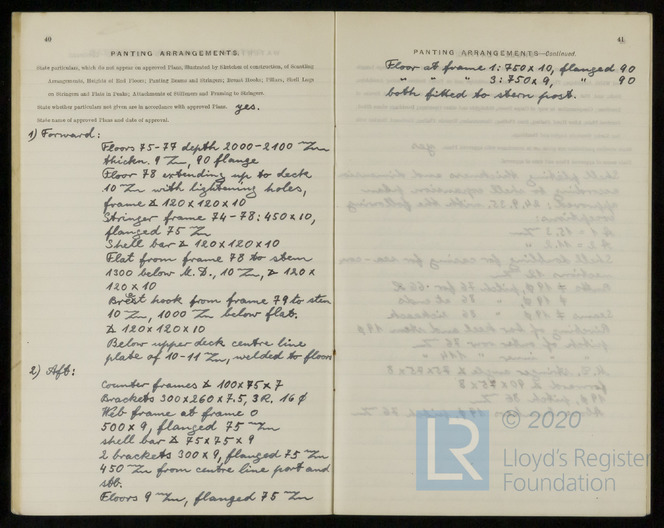 40
PANTING ARRANGEMENTS.
State particulars, which do not appear on approved Plans, illustrated by Sketches of construction, of Scantling
Arrangements, Heights of End Floors; Panting Beams and Stringers; Breast Hooks; Pillars; Shell Lugs
on Stringers and Flats in Peaks; Attachments of Stiffeners and Framing to Stringers.
State whether particulars not given are in accordance with approved Plans. yes.
State name of approved Plans and date of approval.
1) Forward:
Floors 75-77 depth 2000-2100 m/m
thickn. 9 m/m, 90 flange
Floor 78 extending up to deck
10 m/m with lightening holes,
frame ∠ 120 x 120 x 10
Stringer frame 74-78: 450 x 10,
flanged 75 m/m
Shell bar ∠ 120 x 120 x 10
Flat from frame 78 to stem
1300 below M. D., 10 m/m, ∠ 120 x
120 x 10
Breast hook from frame 79 to stem
10 m/m, 1000 m/m below flat.
∠ 120 x 120 x 10
Below upper deck centre line
plate of 10-11 m/m, welded to floors
2) Aft:
Counter frames ∠ 100 x 75 x 7
Brackets 300 x 260 x 7.5, 3 R. 16 ∅
Web frame at frame 0
500 x 9, flanged 75 m/m
shell bar ∠ 75 x 75 x 9
2 brackets 300 x 9, flanged 75 m/m
450 m/m from centre line port and
stb.
Floors 9 m/m, flanged 75 m/m
41
PANTING ARRANGEMENTS—Continued.
Floor at frame 1: 750 x 10, flanged 90
" " " 3: 750 x 9, " 90
both fitted to stern post.
© 2020
LR
Lloyd's Register
Foundation